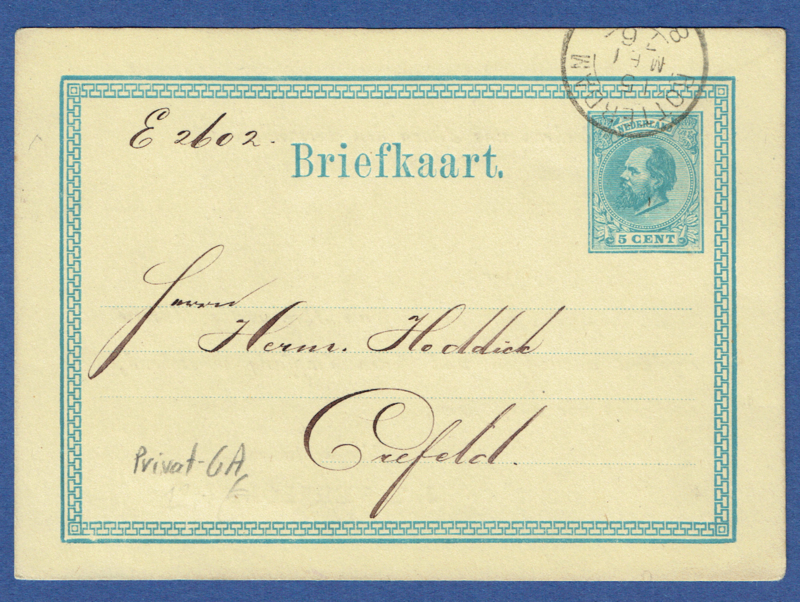 ROTTERDAM
E 2602.
Briefkaart.
NEDERLAND
5 CENT
Herrn
Herm. Hoddick
Crefeld.
Privat-GA